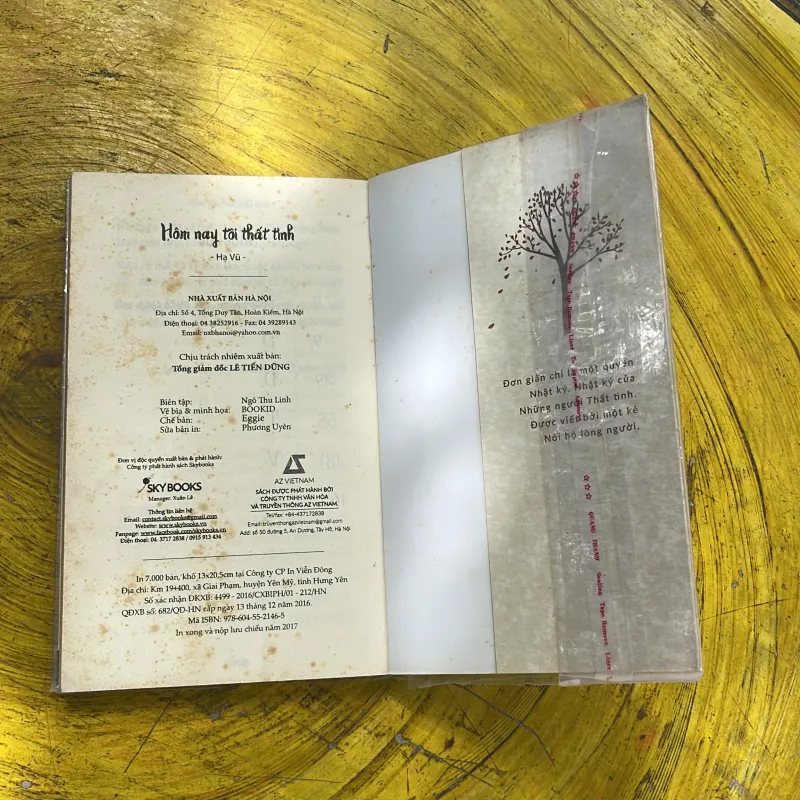 Hôm nay tôi thất tình
- Hạ Vũ -
NHÀ XUẤT BẢN HÀ NỘI
Địa chỉ: Số 4, Tống Duy Tân, Hoàn Kiếm, Hà Nội
Điện thoại: 04 38252916 - Fax: 04 39289143
Email: nxbhanoi@yahoo.com.vn
Chịu trách nhiệm xuất bản:
Tổng giám đốc LÊ TIẾN DŨNG
Biên tập: Ngô Thu Linh
Vẽ bìa & minh họa: BOOKID
Chế bản: Eggie
Sửa bản in: Phương Uyên
Đơn vị độc quyền xuất bản & phát hành:
Công ty phát hành sách Skybooks
SKYBOOKS
Manager: Xuân Lê
Thông tin liên hệ
Email: contact.skybooks@gmail.com
Website: www.skybooks.vn
Fanpage: www.facebook.com/skybooks.vn
Điện thoại: 04. 3717 2838 / 0915 913 434
AZ VIETNAM
SÁCH ĐƯỢC PHÁT HÀNH BỞI
CÔNG TY TNHH VĂN HÓA
VÀ TRUYỀN THÔNG AZ VIETNAM
Tel/fax: +84-437172838
Email: truyenthongazvietnam@gmail.com
Add: số 50 đường 5, An Dương, Tây Hồ, Hà Nội
In 7.000 bản, khổ 13x20,5cm tại Công ty CP In Viễn Đông
Địa chỉ: Km 19+400, xã Giai Phạm, huyện Yên Mỹ, tỉnh Hưng Yên
Số xác nhận ĐKXB: 4499 - 2016/CXBIPH/01 - 212/HN
QĐXB số: 682/QĐ-HN cấp ngày 13 tháng 12 năm 2016.
Mã ISBN: 978-604-55-2146-5
In xong và nộp lưu chiểu năm 2017
Đơn giản chỉ là một quyển
Nhật ký. Nhật ký của
Những người Thất tình.
Được viết bởi một kẻ
Nói hộ lòng người.
Sealing Tape Remove Liner To
QUANG THANH Sealing Tape Remove Liner